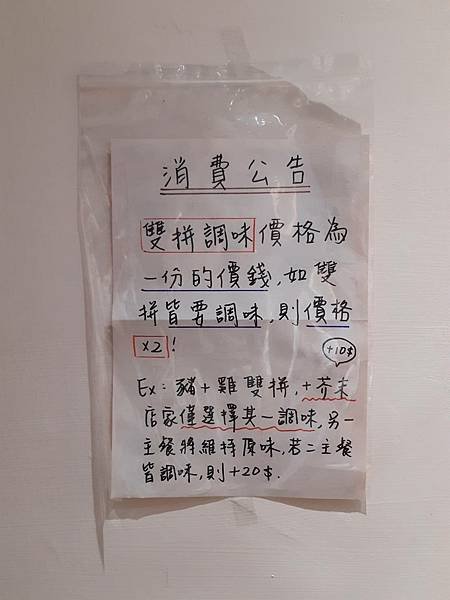 消費公告
雙拼調味價格為
一份的價錢,如雙
拼皆要調味,則價格
x2!
+10$
Ex:豬+雞雙拼,+芥末
店家僅選擇其一調味,另一
主餐將維持原味,若二主餐
皆調味,則+20$.